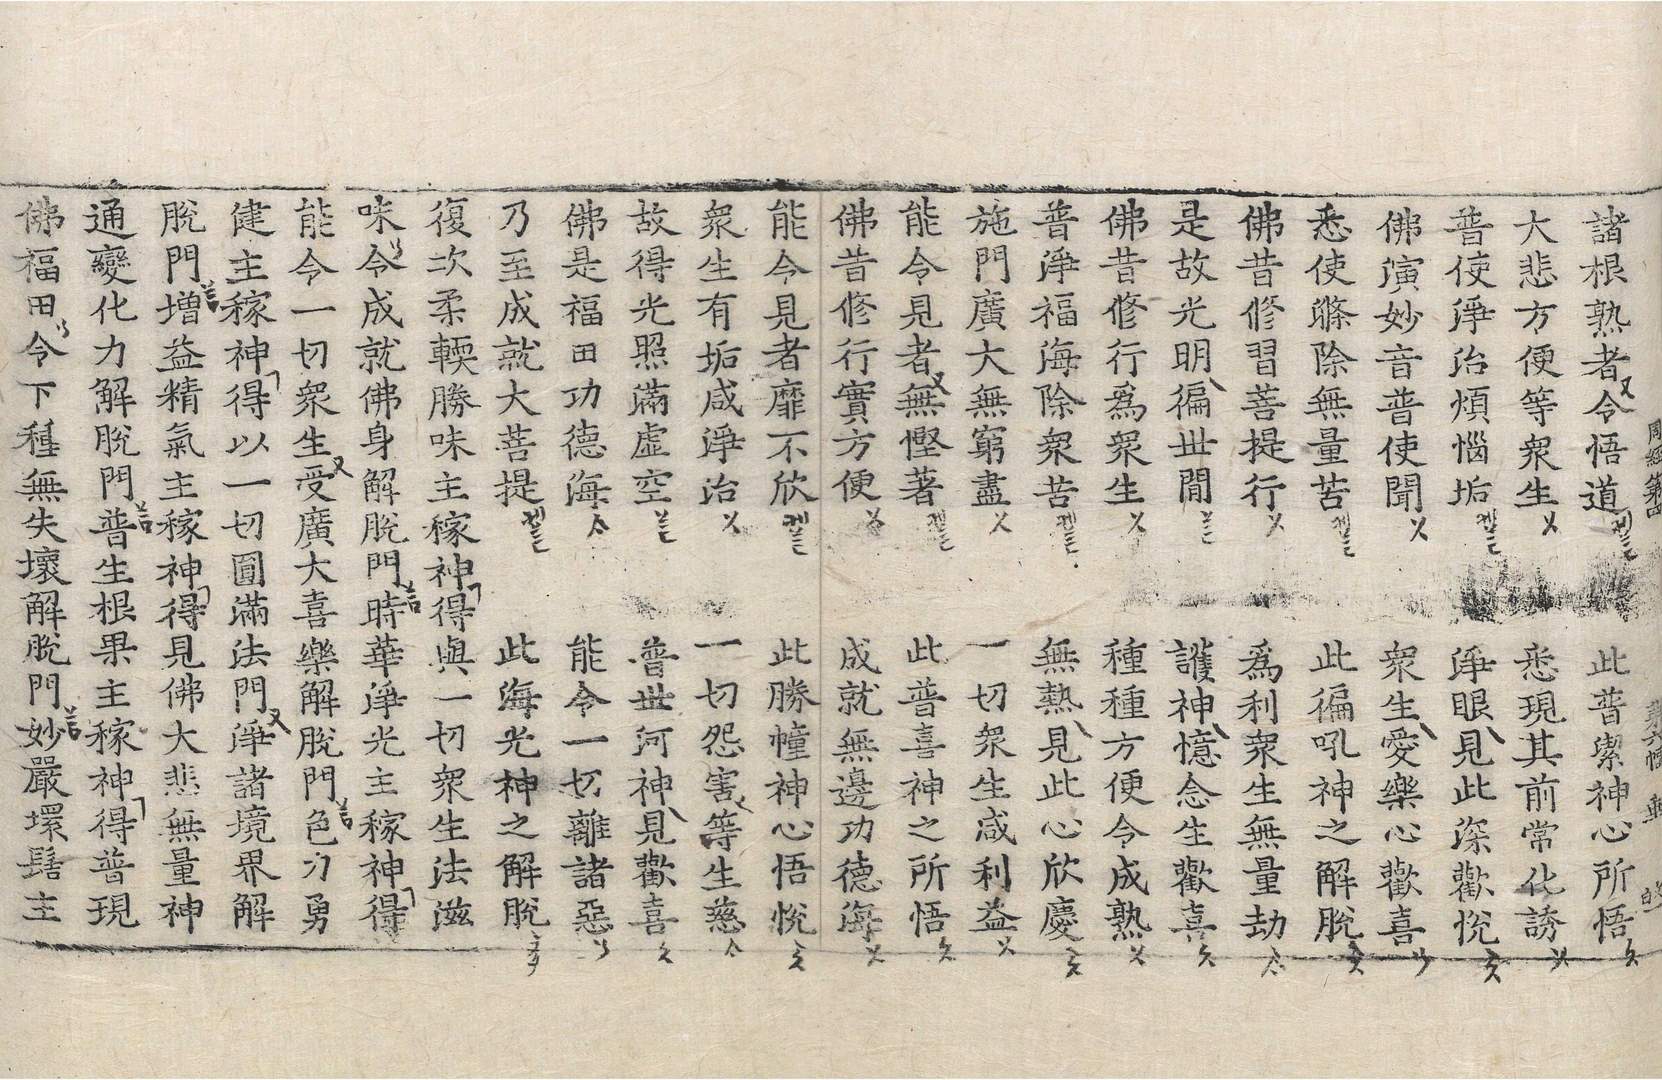 諸根熟者令悟道　此普潔神心所悟
大悲方便等眾生　悉現其前常化誘
普使淨治煩惱垢　淨眼見此深歡悅
佛演妙音普使聞　眾生愛樂心歡喜
悉使滌除無量苦　此徧吼神之解脫
佛昔修習菩提行　為利眾生無量劫
是故光明徧世間　護神憶念生歡喜
佛昔修行為眾生　種種方便令成熟
普淨福海除眾苦　無熱見此心欣慶
施門廣大無窮盡　一切眾生咸利益
能令見者無慳著　此普喜神之所悟
佛昔修行實方便　成就無邊功德海
能令見者靡不欣　此勝幢神心悟悅
眾生有垢咸淨治　一切怨害等生慈
故得光照滿虛空　普世河神見歡喜
佛是福田功德海　能令一切離諸惡
乃至成就大菩提　此海光神之解脫
復次柔輭勝味主稼神得與一切眾生法滋
味令成就佛身解脫門時華淨光主稼神得
能令一切眾生受廣大喜樂解脫門色力勇
健主稼神得以一切圓滿法門淨諸境界解
脫門增益精氣主稼神得見佛大悲無量神
通變化力解脫門普生根果主稼神得普現
佛福田令下種無失壞解脫門妙嚴環髻主